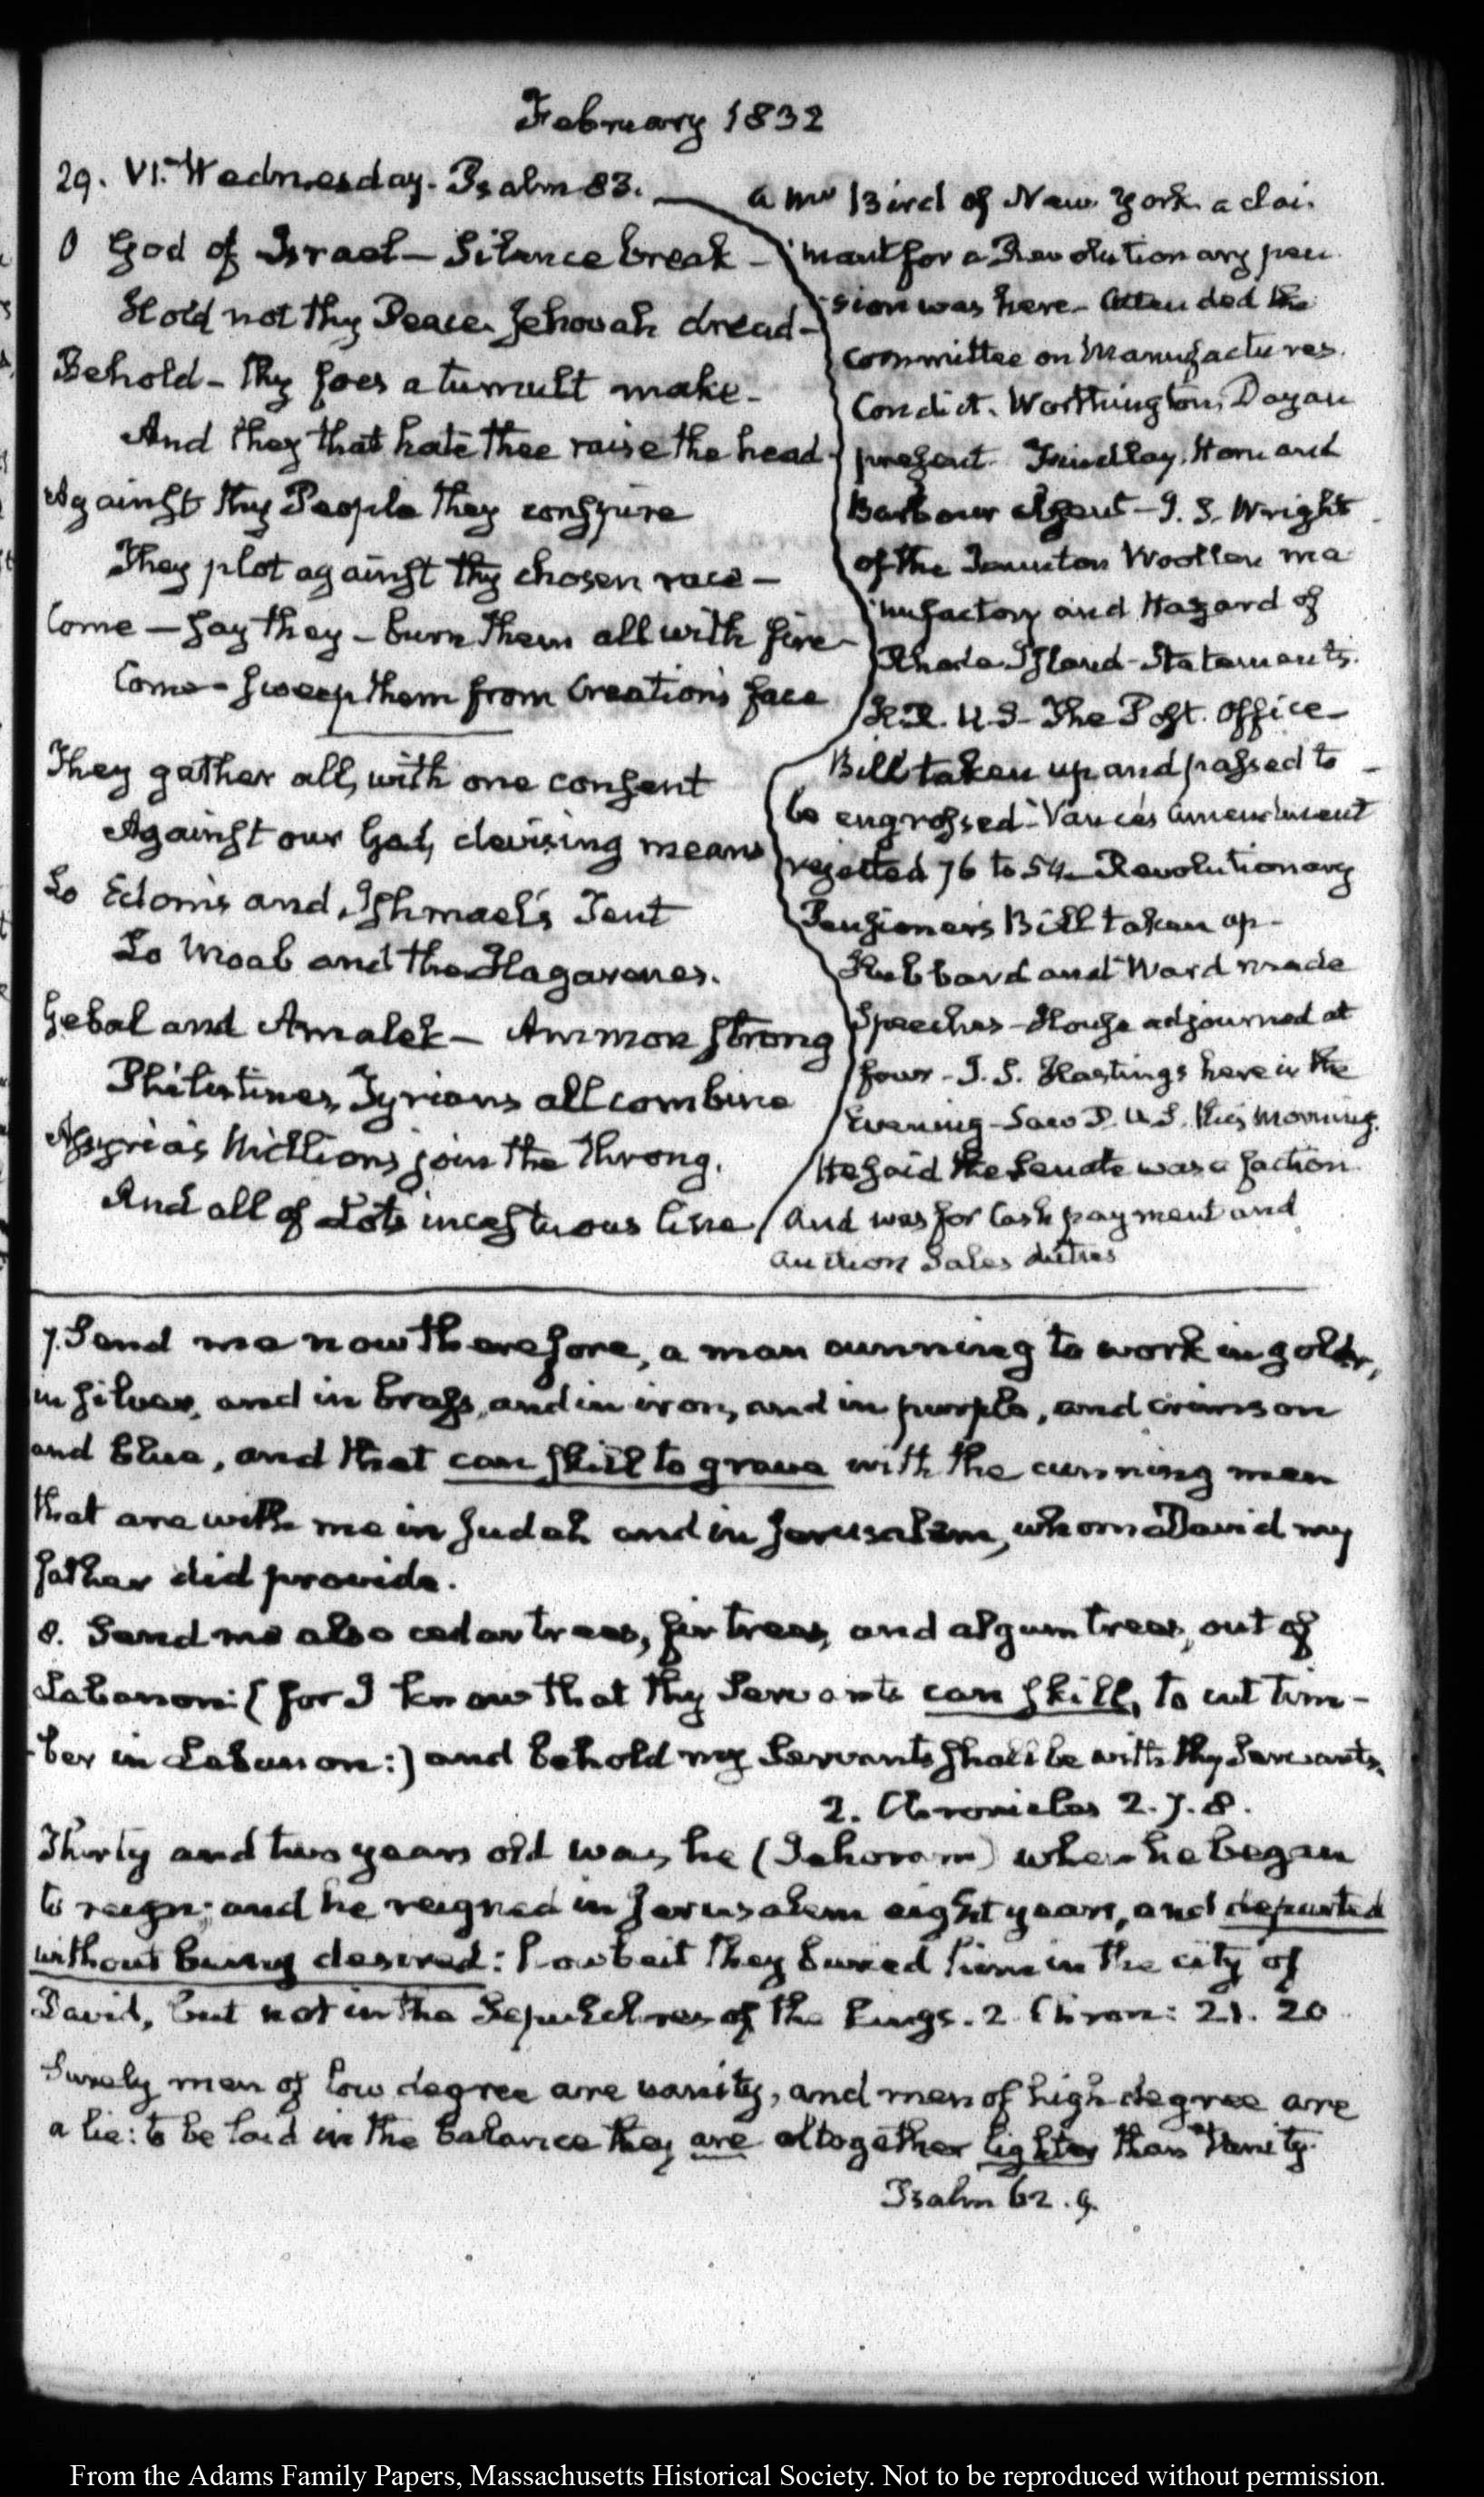 February 1832
29. VI. Wednesday. Psalm 83.
O God of Israel — Silence break —
Hold not thy Peace Jehovah dread —
Behold — thy foes a tumult make —
And they that hate thee raise the head
Against thy People they conspire
They plot against thy chosen race —
Come — say they — burn them all with fire —
Come — sweep them from Creation's face
They gather all, with one consent
Against our God, devising means
Lo Edom's and Ishmael's Tent
Lo Moab and the Hagarenes.
Gebal and Amalek — Ammon strong
Philistines, Tyrians all combine
Assyria's Millions join the throng.
And all of Lot's incestuous line
a Mr Bird of New York a clai
mant for a Revolutionary pen
sion was here — Attended the
Committee on Manufactures.
Condict, Worthington, Dayan
present. Findlay, Horn and
Barbour absent — I. S. Wright
of the Taunton Woollen ma
nufactory and Hazard of
Rhode Island — Statements.
H.R. U.S — The Post. Office —
Bill taken up and passed to
be engrossed — Vance's Amendment
rejected 76 to 54 — Revolutionary
Pensioner's Bill taken up —
Hubbard and Ward made
Speeches — House adjourned at
four — I. S. Hastings here in the
Evening — Saw P. U.S. this morning.
He said the Senate was a faction
and was for Cash payment and
auction Sales duties
7. Send me now therefore, a man cunning to work in gold,
in silver, and in brass, and in iron, and in purple, and crimson
and blue, and that can skill to grave with the cunning men
that are with me in Judah and in Jerusalem, whom David my
father did provide.
8. Send me also cedar trees, fir trees, and algum trees, out of
Lebanon: (for I know that thy Servants can skill, to cut tim-
-ber in Lebanon:) and behold my Servants shall be with thy Servants.
2. Chronicles 2. 7. 8.
Thirty and two years old was he (Jehoram) when he began
to reign; and he reigned in Jerusalem eight years, and departed
without being desired: howbeit they buried him in the city of
David, but not in the Sepulchres of the Kings. 2 Chron: 21. 20
Surely men of low degree are vanity, and men of high degree are
a lie: to be laid in the balance they are altogether lighter than Vanity.
Psalm 62. 9.
From the Adams Family Papers, Massachusetts Historical Society. Not to be reproduced without permission.